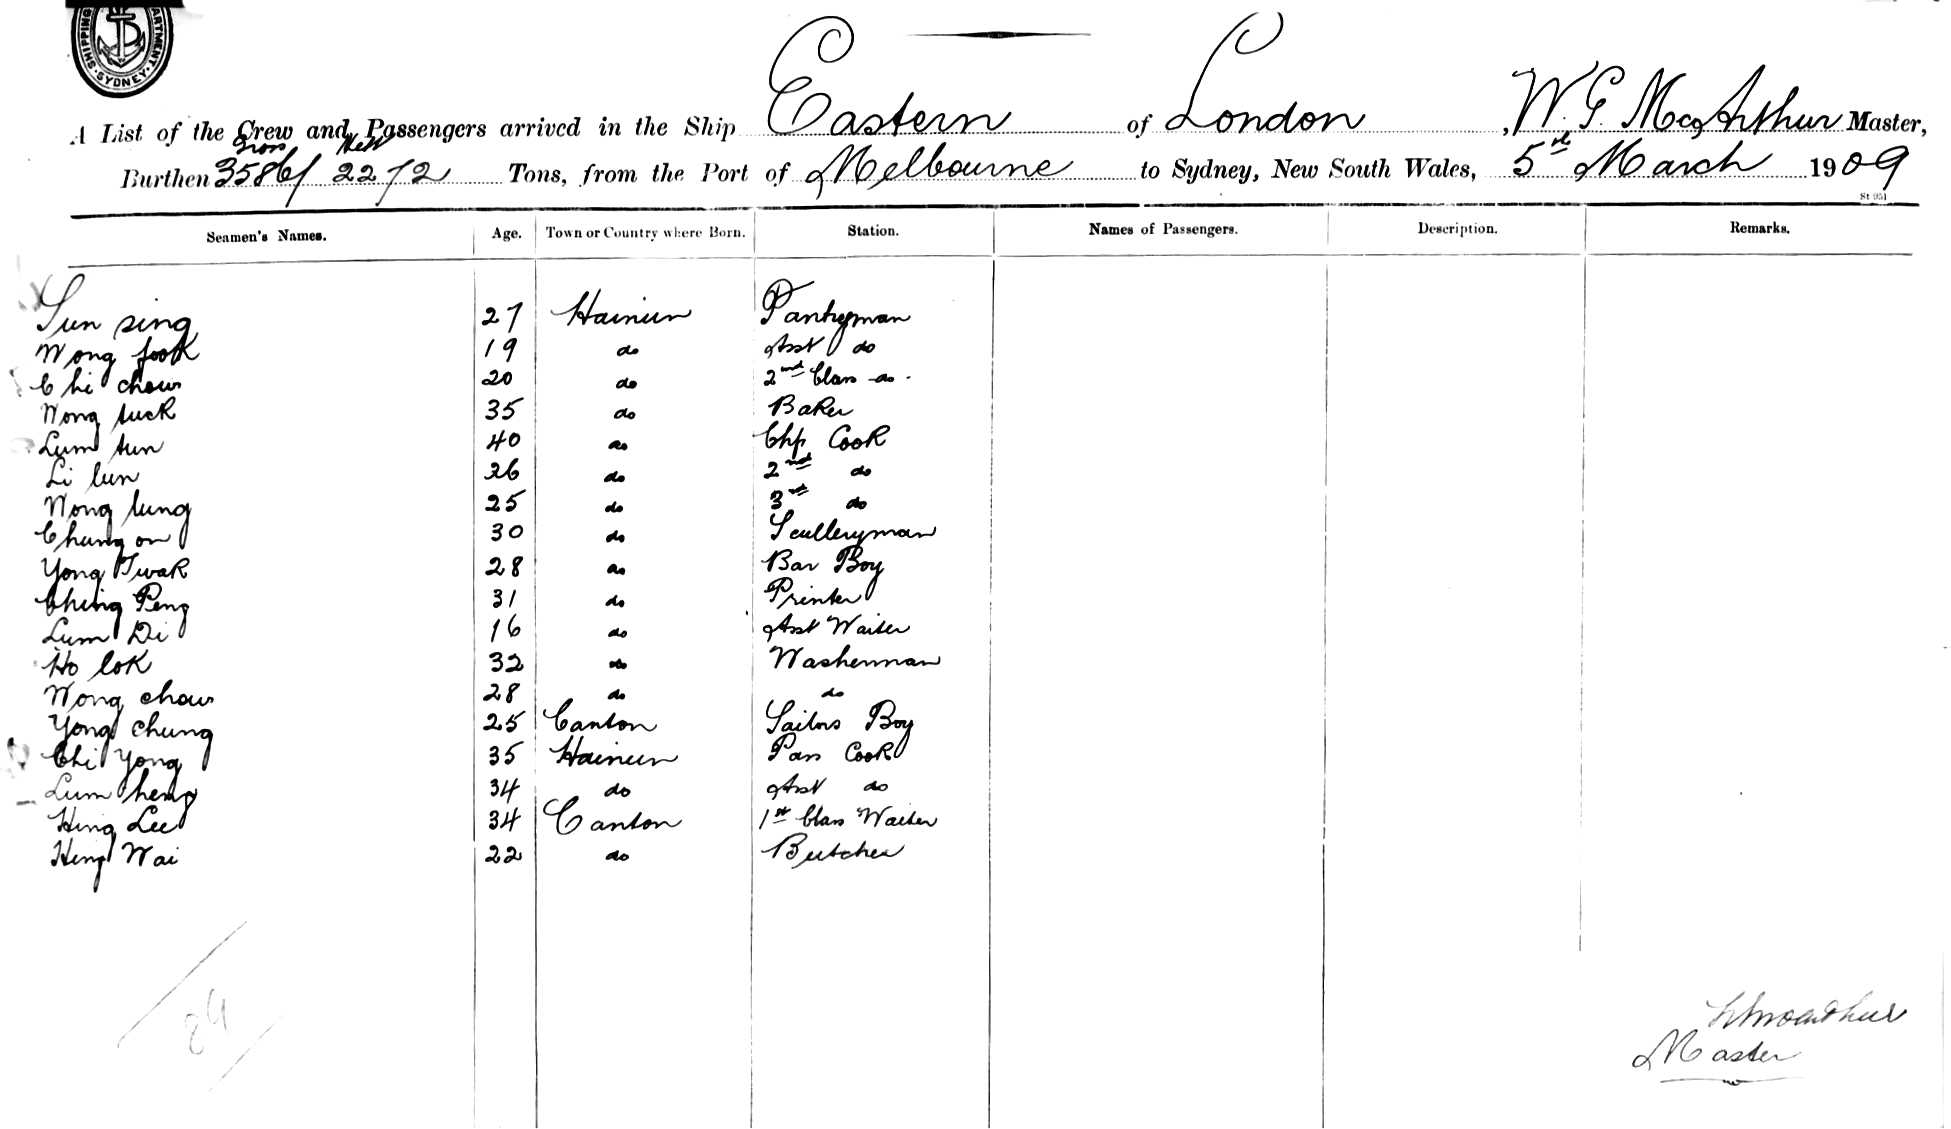 SHIPPING DEPARTMENT SYDNEY
A List of the Crew and Passengers arrived in the Ship Eastern of London, W. G. McArthur Master,
Gross Nett
Burthen 3586/ 2272 Tons, from the Port of Melbourne to Sydney, New South Wales, 5th March 1909
Seamen's Names. Age. Town or Country where Born. Station. Names of Passengers. Description. Remarks.
Sun sing 27 Hainun Pantryman
Wong fook 19 do Asst do
Chi chow 20 do 2nd Class do
Wong tuck 35 do Baker
Lum tun 40 do Chf Cook
Li lun 26 do 2nd do
Wong lung 25 do 3rd do
Chung on 30 do Sculleryman
Yong Twak 28 do Bar Boy
Ching Peng 31 do Printer
Lum Di 16 do Asst Waiter
Ho lok 32 do Washerman
Wong chow 28 do do
Yong chung 25 Canton Sailors Boy
Chi Yong 35 Hainun Pass Cook
Lum heng 34 do Asst do
Hing Lee 34 Canton 1st Class Waiter
Hing Wai 22 do Butcher
84
McArthur
Master